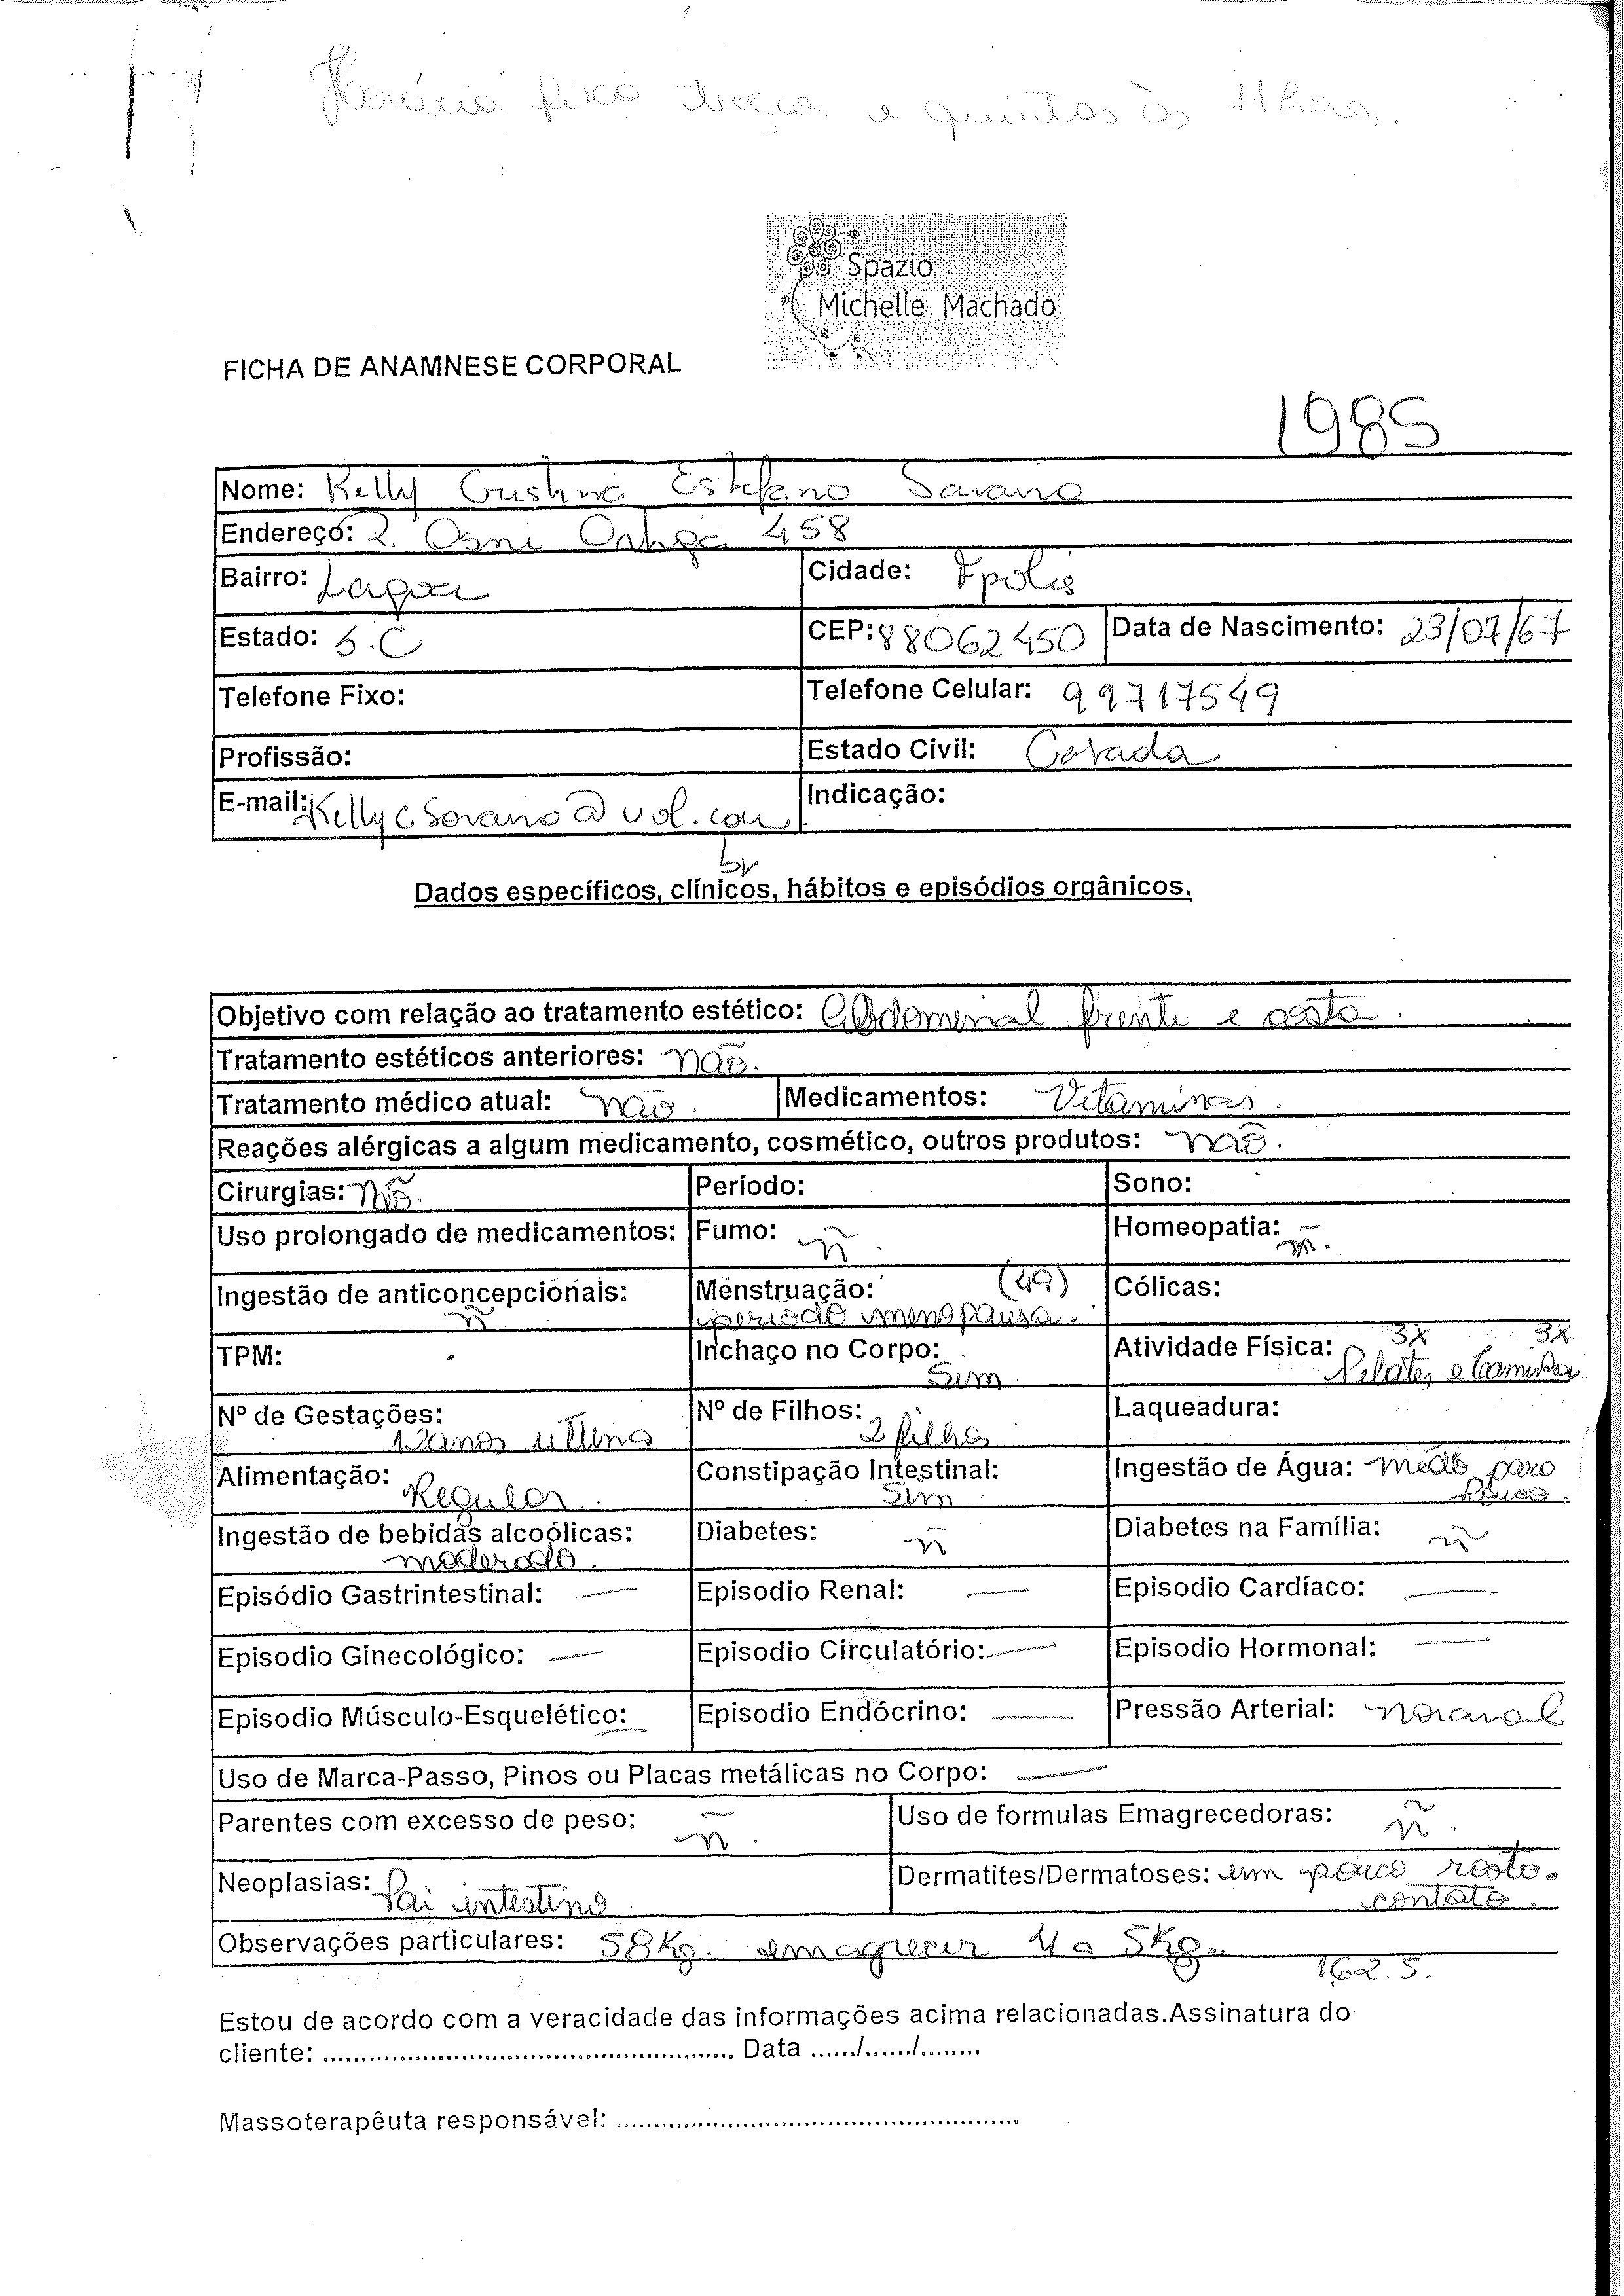 Horário fixo terça e quintas às 11 hrs.
Spazio
Michelle Machado
FICHA DE ANAMNESE CORPORAL
1985
Nome: Kelly Cristina Estefano
Endereço: R. Osni Ortiga 458
Bairro: Lagoa Cidade: Fpolis
Estado: S.C CEP: 88062450 Data de Nascimento: 23/07/67
Telefone Fixo: Telefone Celular: 99717549
Profissão: Estado Civil: Casada
E-mail: Indicação:
br
Dados específicos, clínicos, hábitos e episódios orgânicos.
Objetivo com relação ao tratamento estético: Abdominal frente e costa.
Tratamento estéticos anteriores: não.
Tratamento médico atual: não. Medicamentos: Vitaminas.
Reações alérgicas a algum medicamento, cosmético, outros produtos: não.
Cirurgias: não. Período: Sono:
Uso prolongado de medicamentos: Fumo: ñ. Homeopatia: ñ.
Ingestão de anticoncepcionais: ñ Menstruação: (49) periodo menopausa. Cólicas:
TPM: Inchaço no Corpo: Sim Atividade Física: 3x 3x Pilates e
Nº de Gestações: 12 anos ultima Nº de Filhos: 2 filhos Laqueadura:
Alimentação: Regular. Constipação Intestinal: Sim Ingestão de Água: médio para pouco.
Ingestão de bebidas alcoólicas: moderado. Diabetes: ñ Diabetes na Família: ñ
Episódio Gastrintestinal: — Episodio Renal: — Episodio Cardíaco: —
Episodio Ginecológico: — Episodio Circulatório: — Episodio Hormonal: —
Episodio Músculo-Esquelético: — Episodio Endócrino: — Pressão Arterial: Normal
Uso de Marca-Passo, Pinos ou Placas metálicas no Corpo: —
Parentes com excesso de peso: ñ. Uso de formulas Emagrecedoras: ñ.
Neoplasias: Pai intestino. Dermatites/Dermatoses: um pouco rosto. contato.
Observações particulares: 58Kg. emagrecer 4 a 5Kg.
162.5.
Estou de acordo com a veracidade das informações acima relacionadas.Assinatura do
cliente: ...................................................... Data ....../....../........
Massoterapêuta responsável: .....................................................